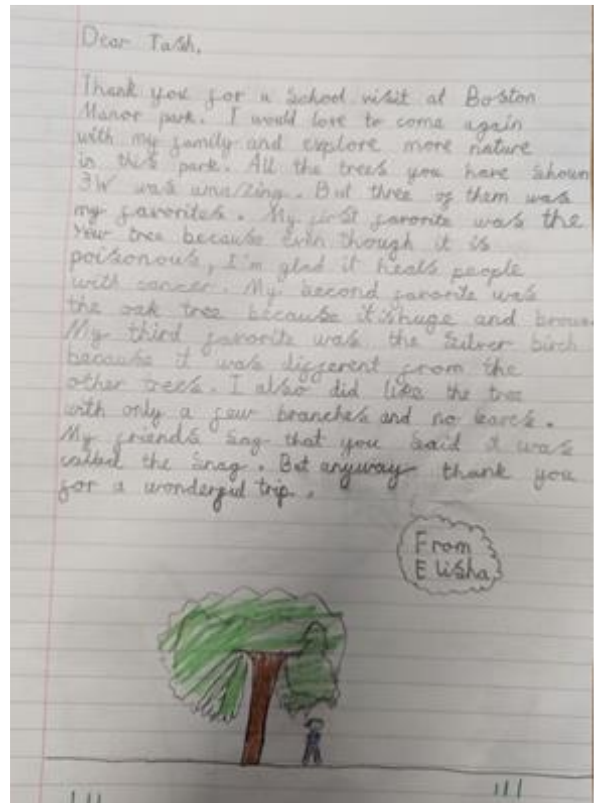 Dear Tash,
Thank you for a school visit at Boston
Manor park. I would love to come again
with my family and explore more nature
in this park. All the trees you have shown
3W was amazing. But three of them was
my favorites. My first favorite was the
Yew tree because even though it is
poisonous, I'm glad it heals people
with cancer. My second favorite was
the oak tree because it is huge and brown
My third favorite was the Silver birch
because it was different from the
other trees. I also did like the tree
with only a few branches and no leaves.
My friends that you said it was
called the Snag. But anyway thank you
for a wonderful trip.
From
Elisha